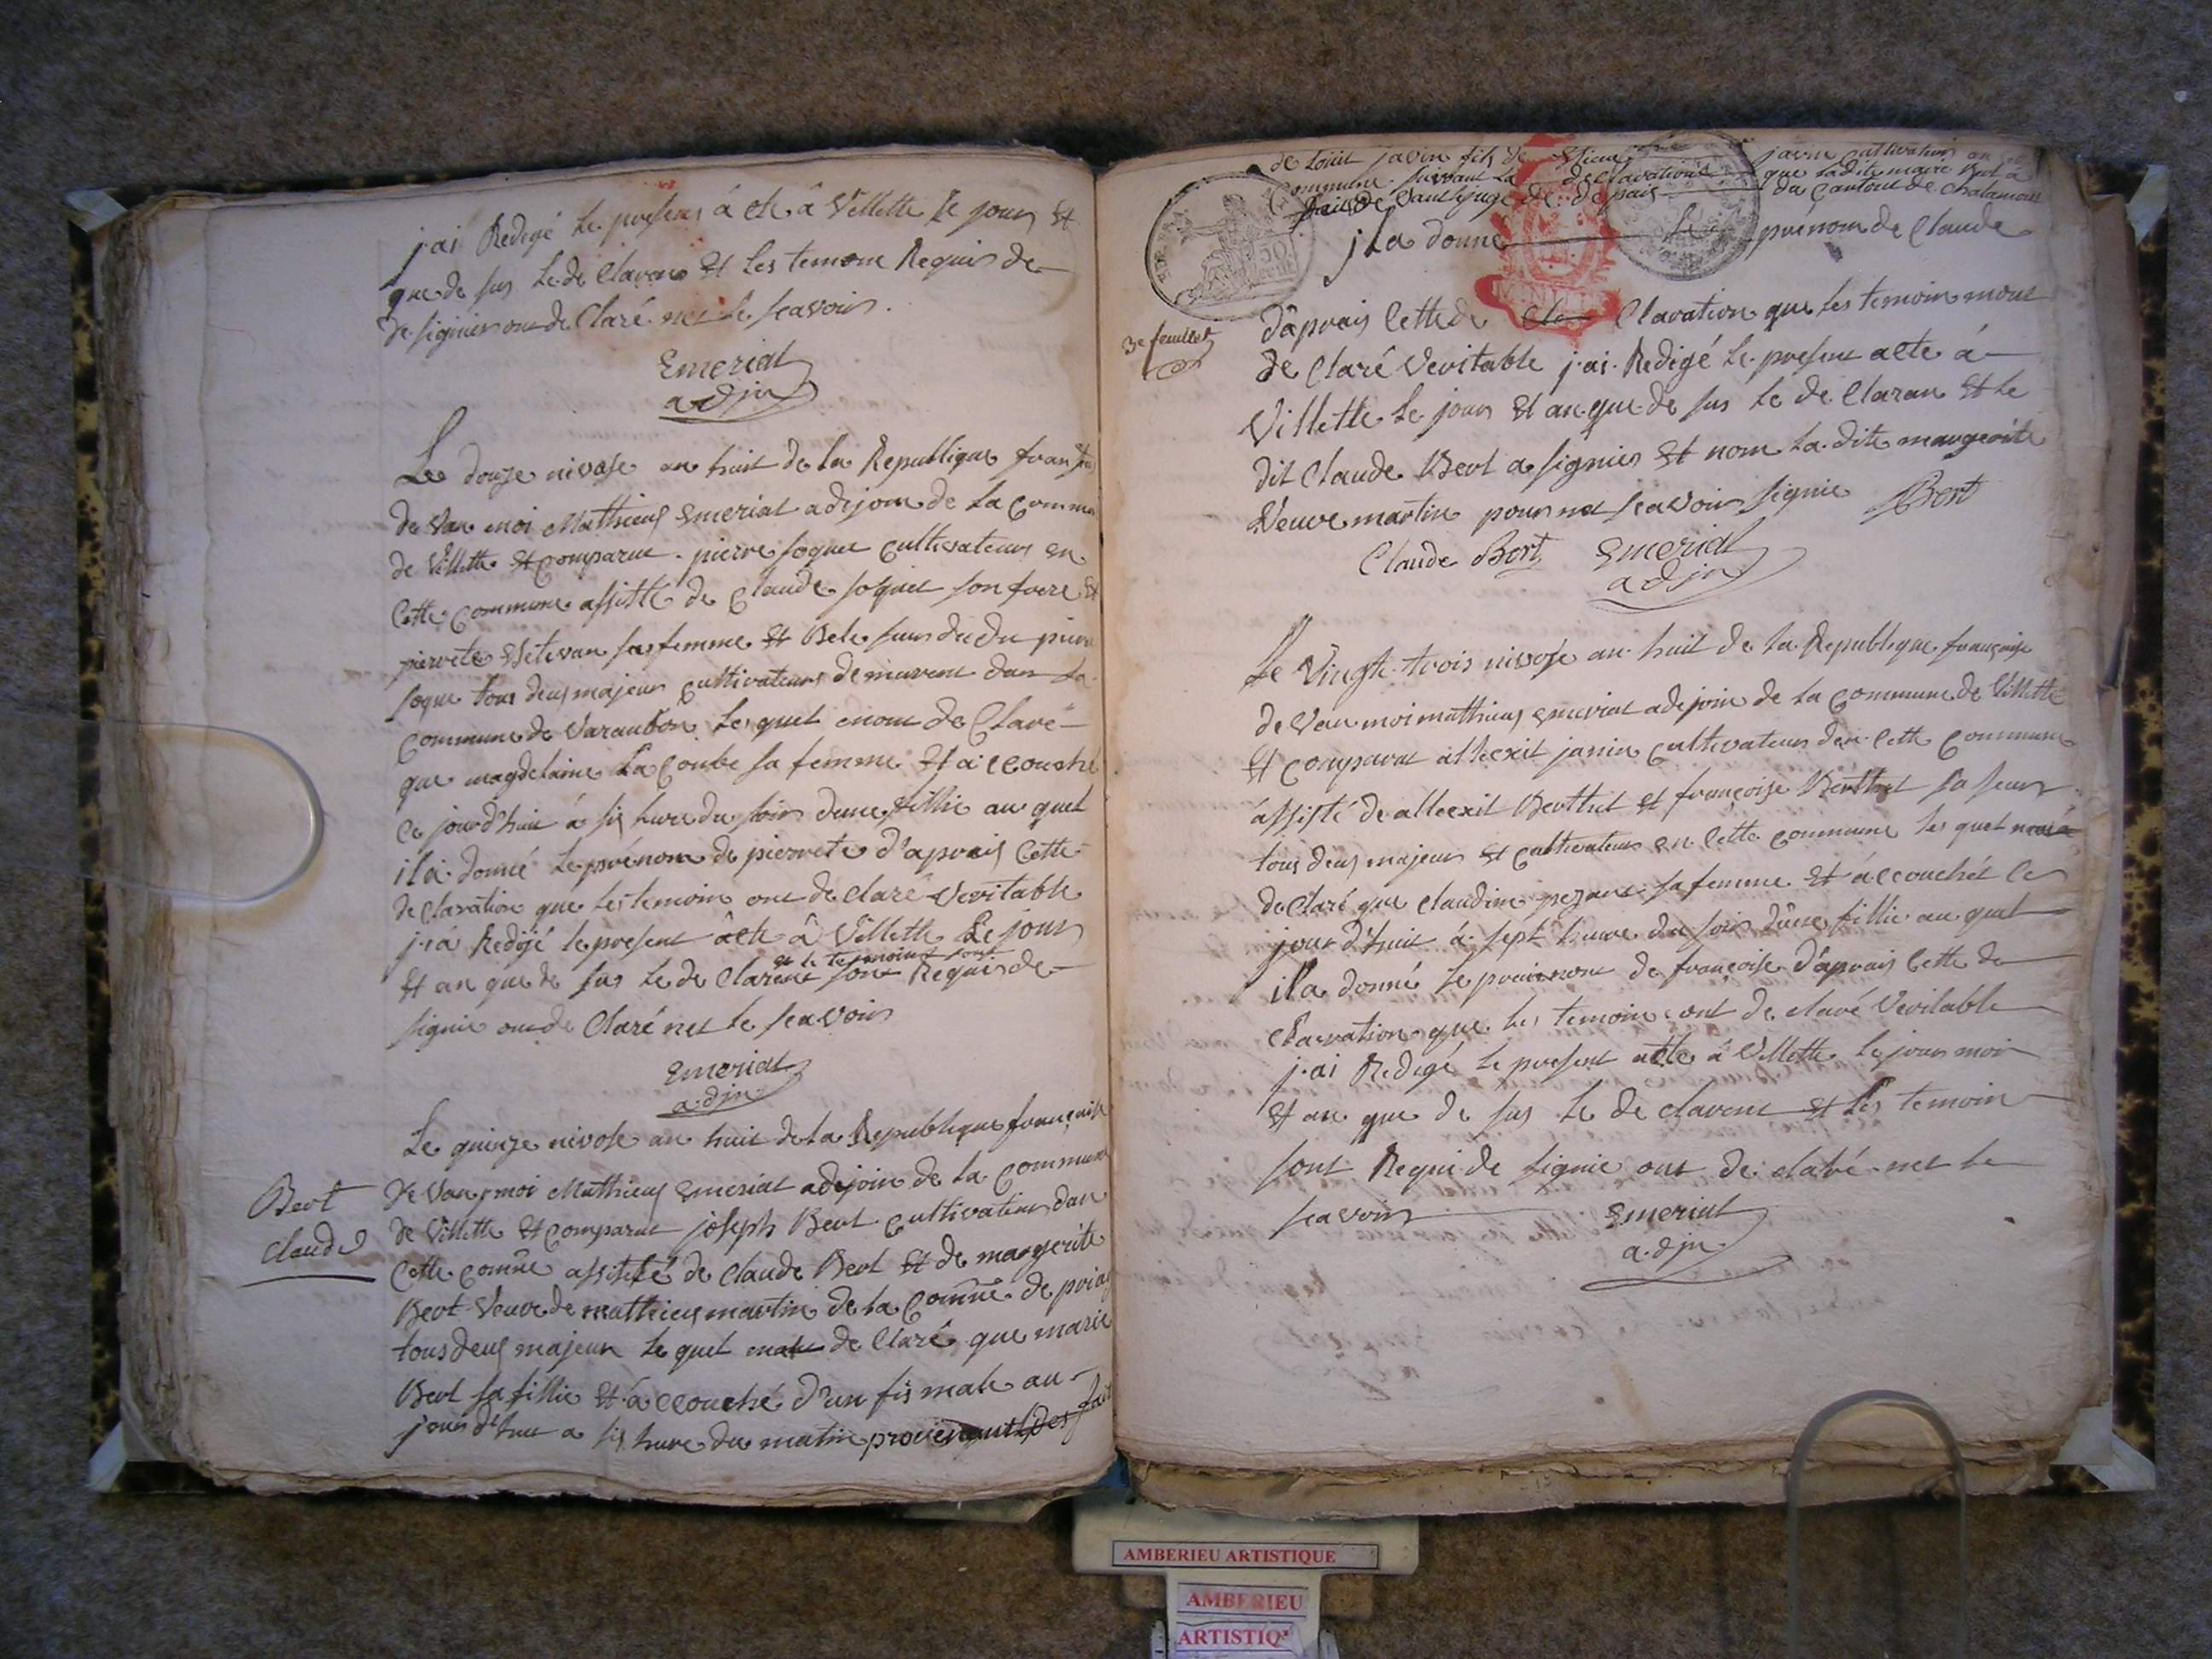 j.ai Redigé Le presens á cte â Villette Le jours Et
que de sus Le de Clarens Et Les temoin Requis de
De signier on de Claré net Le scavoir.
Emeriat
adjn
Le douze nivose an huit de la Republique
de van moi Mathieux Emeriat adijoin de La
de Villette Et comparue . pierre soquet Cultivateurs en
Cette Commune assisté de Claude soquet son frere Et
pierrete Estevan sa femme Et Bele seur du du pierre
soque tous deux majeur cultivateurs demeurent dan La
Commune de Varanbon Lesquel mont de Claré
que magdelaine La Combe sa femme Et a ccouché
Ce jourd'huit á six hure du soir dune fillie au quel
il a donné Le prénom de pierrete d'aprais Cette
de claration que Les temoin ont de Claré Veritable
j.á Redijé Le present âcte â Villette Le jour
et le temoins sont
Et an que de sus Le de Clarent sont Requis de
signié on de Claré net Le scavoir
Emeriat
adjn
Le quinze nivose an huit de La Republique françaisse
Bert
Claude
De Van moi Mathieux Emeriat adejoin de La Commune
de Villette Et comparut joseph Bert Cultivateur dan
Cette comûe assisté de Claude Bert Et de margerite
Bert Veuve de mathieux martin de La Comûe de priay
tous deux majeur Le quel de Claré que marie
Bert sa fillie Et a ccouché d'un fis male au
jourd'huit a six hure du matin
de Louit javin fils de javin cultivateur
Commune. suivant La declaration que Ladite marie Bert a
fait De Vant Le juge de De pais du Cantont de Chalamont
jl a donné Le prénom de Claude
3e feuillet
d'aprais Cette de Claration que Les temoin mont
de Claré Veritable j.ai Redigé Le present acte á
Villette Le jour Et an que de sus Le de Claran Et Le
dit Claude Bert a signiés Et nom La dite margerite
Veuve martin pour net scavoir signie Bert
Claude Bert Emeriat
adjn
Le Vingte trois nivose an huit de La Republique françaisse
de Van moi mathieux Emeriat adejoin de La Commune de Villette
Et Comparut allexit janin Cultivateur den Cette Commune
ássisté de allexit Berthet Et françoise Berthet sa seur
tous deux majeur Et Cultivateur en Cette Commune Les quel
de Claré que Claudine sa femme Et áccouchét Ce
jour d'huit á sept heure du soir dûne fillie au quel
il a donné Le preinom de françoise D'aprais Cette de
Claration que Les temoin ont de claré Veritable
j.ai Redigé Le present acte á Villette Le jour moi
Et an que de sus Le de clarent Et Les temoin
sont Requi de signié ont de claré net Le
scavoir Emeriat
adjn
AMBERIEU ARTISTIQUE
AMBERIEU
ARTISTIQ